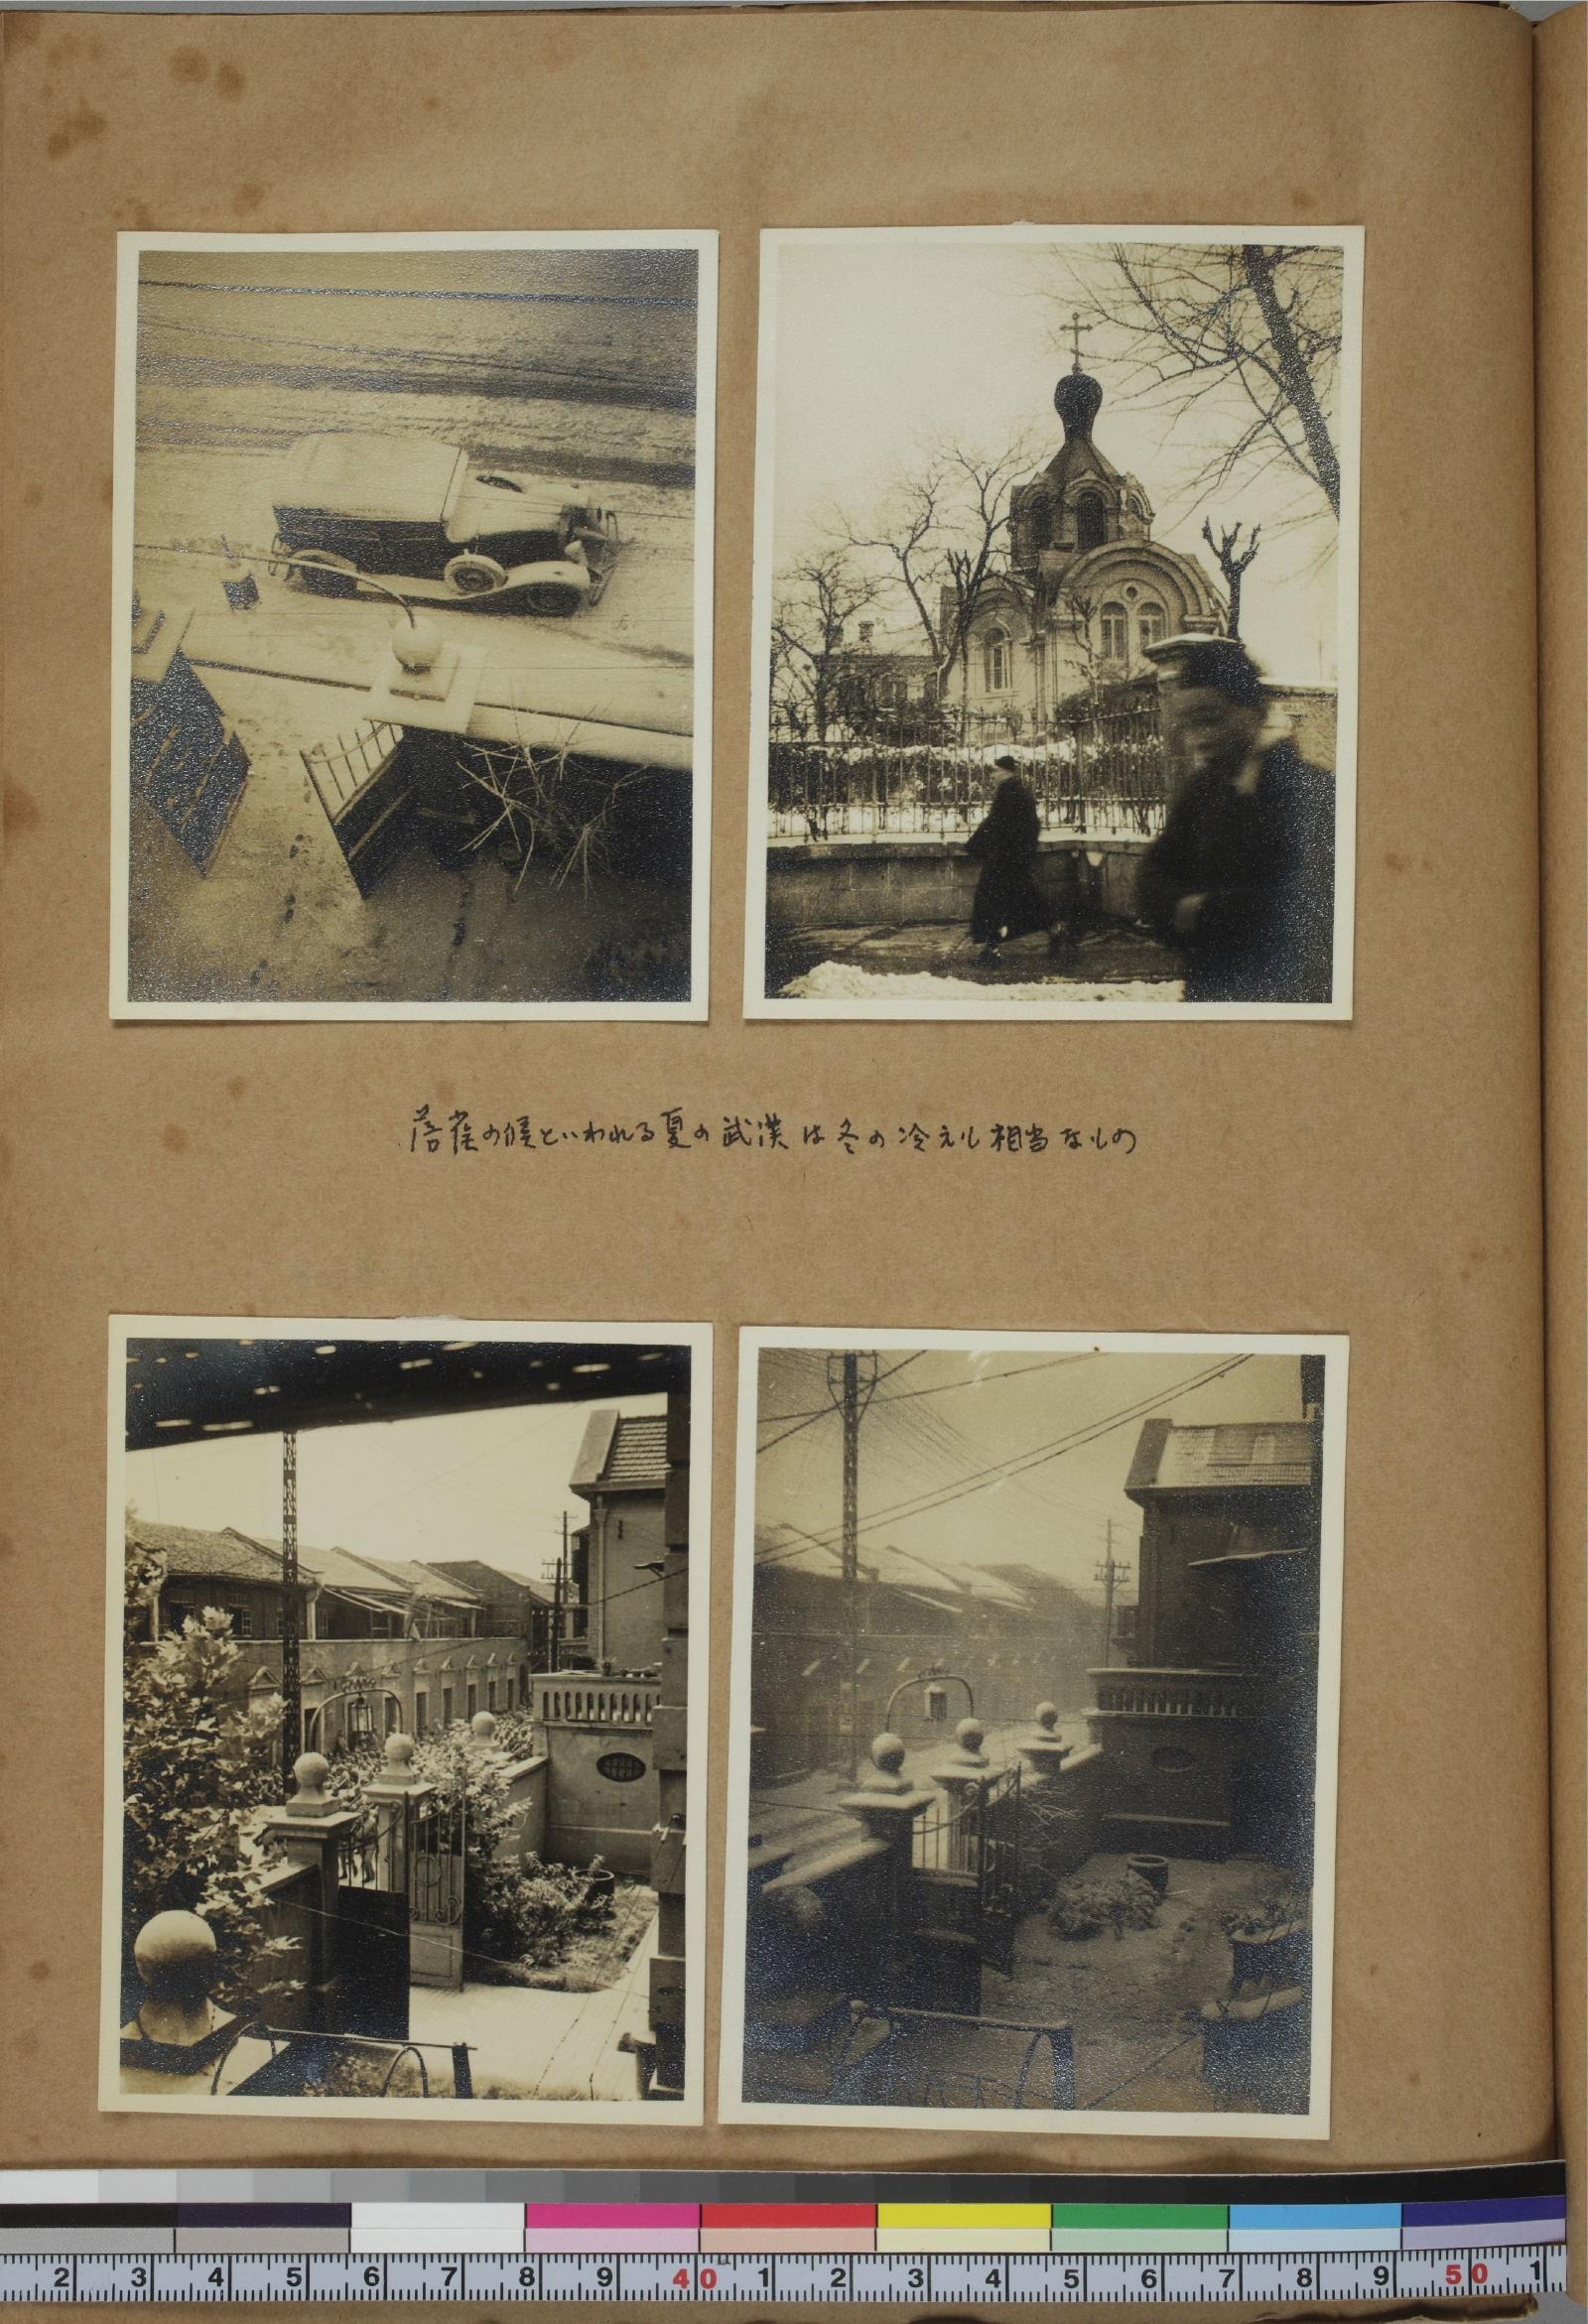 落雀の候といわれる夏の武漢は冬の冷えも相当なもの
2 3 4 5 6 7 8 9 40 1 2 3 4 5 6 7 8 9 50 1